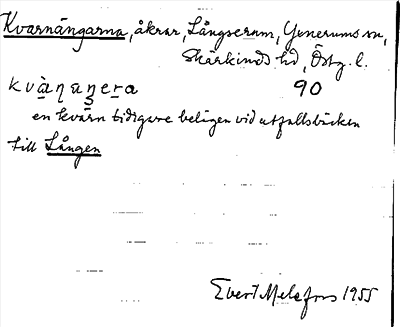 Kvarnängarna, åkrar, Långserum, Yxnerums sn,
Skärkinds hd, Östg. l.
90
en kvarn tidigare belägen vid utfallsbäcken
till Lången
Evert Melefors 1955